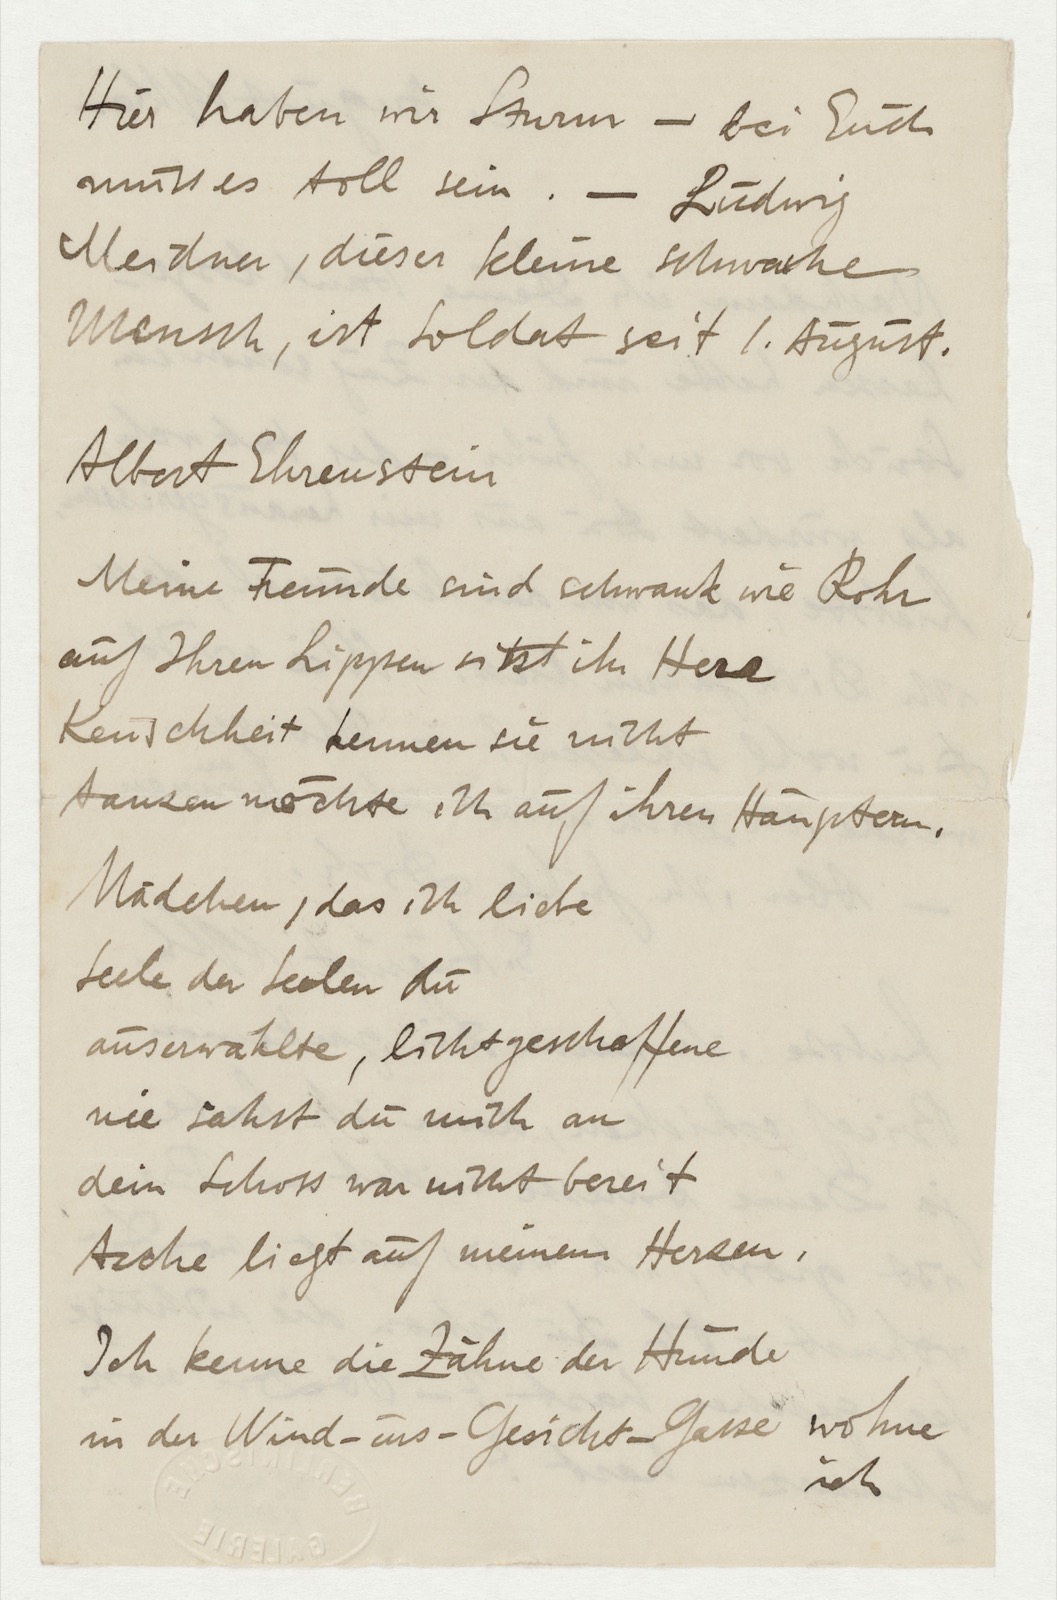 Hier haben wir Sturm — bei Euch
muss es toll sein. — Ludwig
Meidner, dieser kleine schwache
Mensch, ist Soldat seit 1. August.
Albert Ehrenstein
Meine Freunde sind schwank wie Rohr
auf Ihren Lippen sitzt ihr Herz
Keuschheit kennen sie nicht
tanzen möchte ich auf ihren Häuptern.
Mädchen, das ich liebe
Seele der Seelen du
auserwählte, lichtgeschaffene
nie sahst du mich an
dein Schoss war nicht bereit
Asche liegt auf meinem Herzen.
Ich kenne die Zähne der Hunde
in der Wind-ins-Gesicht-Gasse wohne
ich
BERLINISCHE
GALERIE